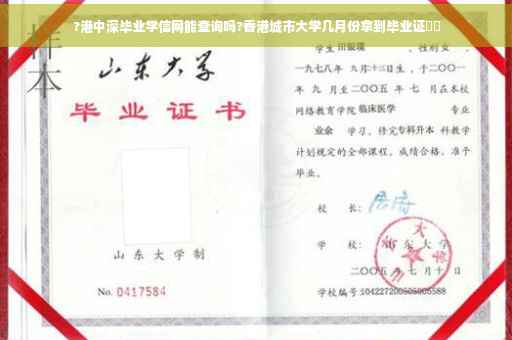 ?港中深毕业学信网能查询吗?香港城市大学几月份拿到毕业证
样本
山东大学
毕业证书
山东大学制
No. 0417584
学生 田银璞 ,性别女,
一九七八年 九月十三日生,于二〇〇一
年 九 月至二〇〇五 年 七 月在本校
网络教育学院 临床医学 专业
业余 学习,修完专科升本 科教学
计划规定的全部课程,成绩合格,准予
毕业。
校 长:
学 校: 山东大学
二〇〇五年 七月十日
学校编号:104227200505005588